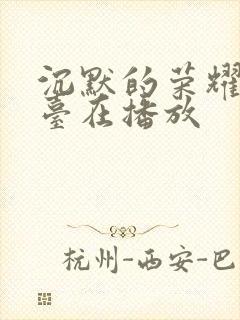 沉默的荣耀
臺在播放
杭州-西安-巴